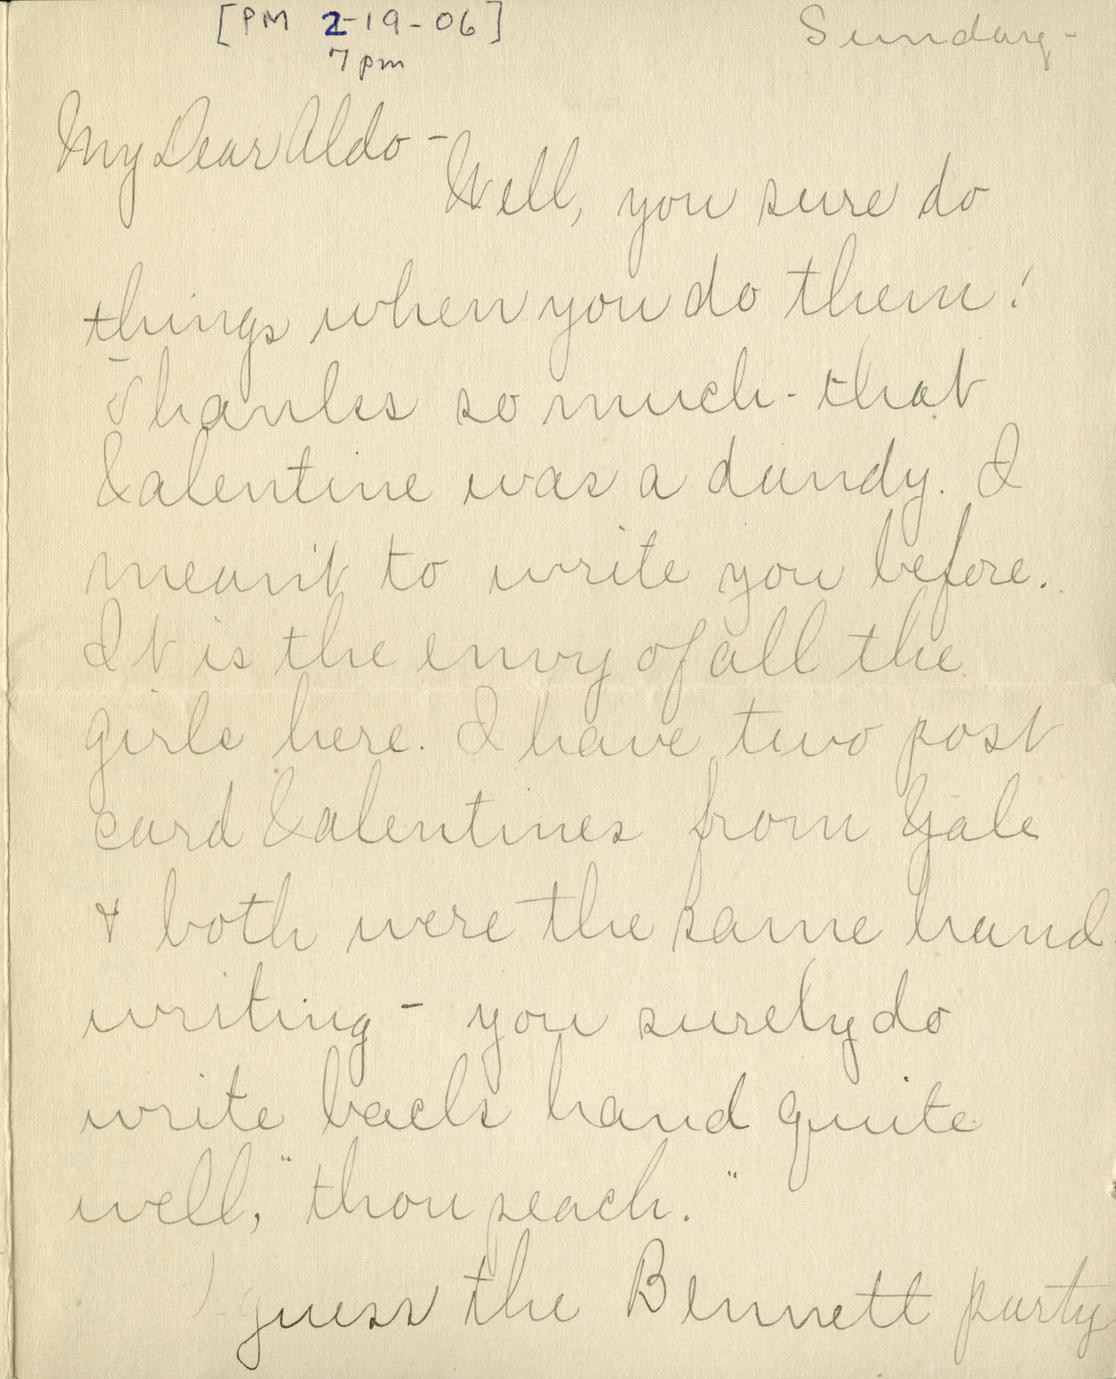 [PM 2-19-06]
7pm
Sunday-
My Dear Aldo -
Well, you sure do
things when you do them!
Thanks so much - that
Valentine was a dandy. I
meant to write you before.
It is the envy of all the
girls here. I have two post
card Valentines from Yale
& both were the same hand
writing - you surely do
write back hand quite
well, "thou peach."
I guess the Bennett party